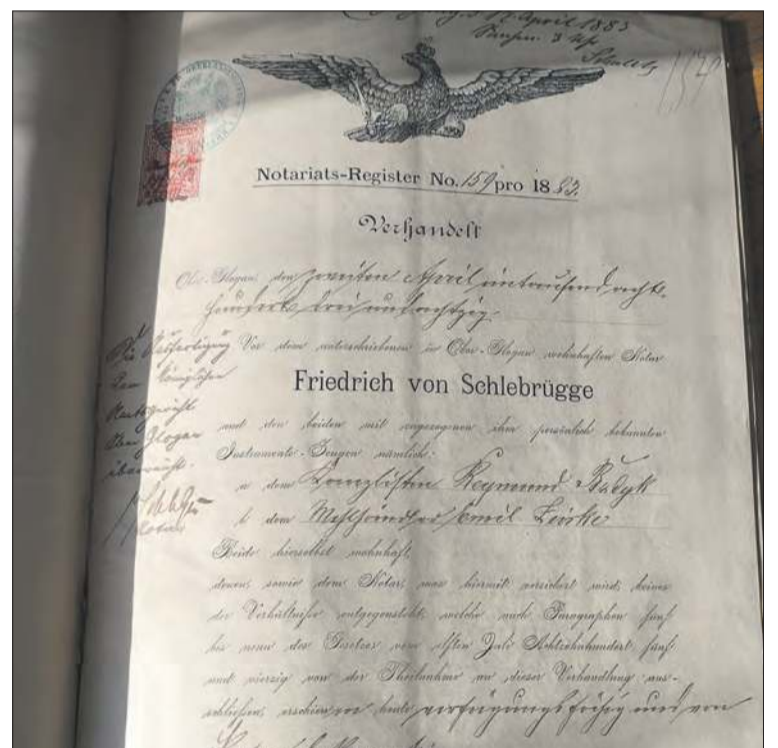 17. April 1883
Notariats-Register No. 159 pro 1883.
Verhandelt
Ober-Glogau, den zweiten April eintausend acht-
hundert drei und achtzig.
Vor dem unterschriebenen in Ober-Glogau wohnhaften Notar
Friedrich von Schlebrügge
und den beiden mit zugezogenen ihm persönlich bekannten
Instruments-Zeugen nämlich:
a dem Kanzlisten
b dem Mehlhändler Emil
Beide hierselbst wohnhaft,
denen, sowie dem Notar, was hiermit versichert wird, keines
der Verhältnisse entgegensteht, welche nach Paragraphen fünf
bis neun des Gesetzes vom elften Juli Achtzehnhundert fünf
und vierzig von der Theilnahme an dieser Verhandlung aus-
schließen, erschien heute verfügungsfähig und von
Die Ausfertigung
dem Königlichen
Amtsgericht
Ober Glogau
überreicht.
Notar